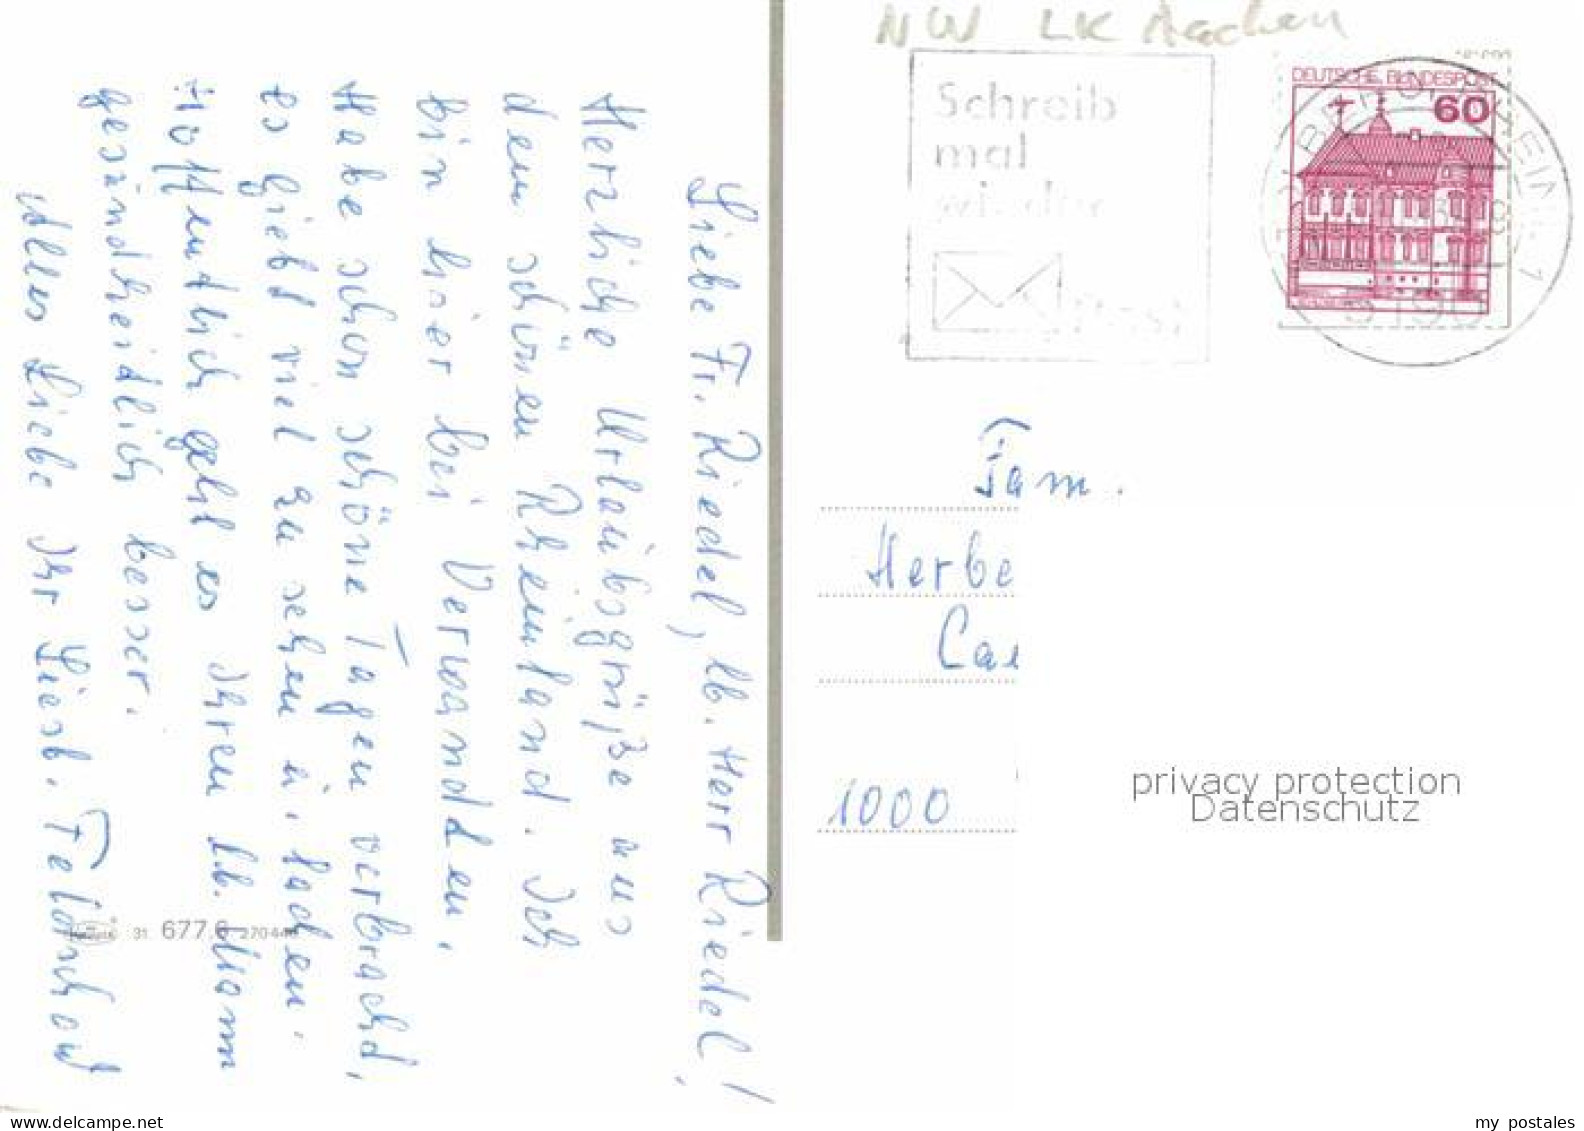 NW LK Aachen
Schreib
mal
wieder
Post
DEUTSCHE BUNDESPOST
60
Liebe Fr. Riedel, lb. Herr Riedel!
Herzliche Urlaubsgrüße aus
dem schönen Rheinland. Ich
bin hier bei Verwandden.
Habe schon schöne Tagen verbrachd,
es giebt viel zu sehen u. lachen.
Hoffentlich geht es Ihren lb. Mann
gesundheidlich besser.
Alles Liebe Ihr Liesb. Feldschow
Fam.
Herbe
Ca
1000
31 677.6 270446
privacy protection
Datenschutz
my postales